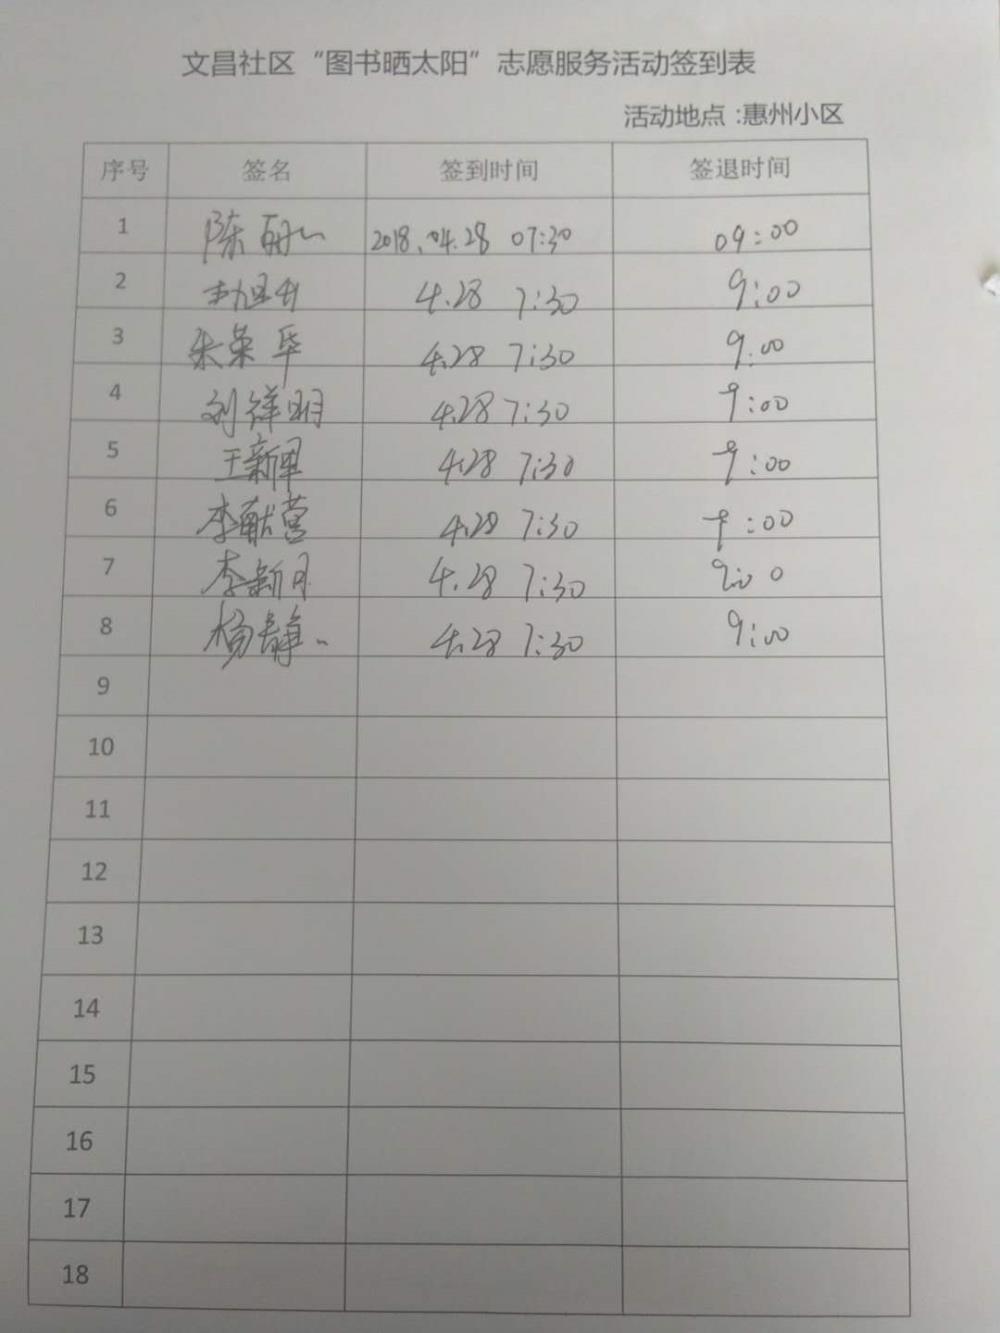 文昌社区“图书晒太阳”志愿服务活动签到表
活动地点:惠州小区
序号 签名 签到时间 签退时间
1 陈 2018.04.28 07:30 09:00
2 4.28 7:30 9:00
3 朱荣华 4.28 7:30 9:00
4 刘祥明 4.28 7:30 9:00
5 王新军 4.28 7:30 9:00
6 李献营 4.28 7:30 9:00
7 李新月 4.28 7:30 9:00
8 杨静 4.28 7:30 9:00
9
10
11
12
13
14
15
16
17
18